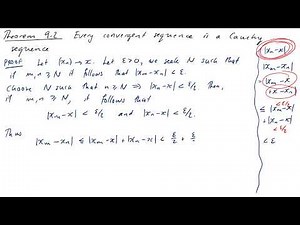 Theorem 9.2 Every convergent sequence is a Cauchy
sequence
Proof Let (xn) → x. Let ε>0, we seek N such that
if m,n ≥ N it follows that |xm-xn| < ε.
Choose N such that n ≥ N ⇒ |xn-x| < ε/2 Then,
if m,n ≥ N, it follows that
|xm-x| < ε/2 and |xn-x| < ε/2.
Thus
|xm-xn| ≤ |xm-x| + |xn-x| < ε/2 + ε/2
|xn-x|
|xm-xn|
= |xm-x
+x-xn|
≤ |xm-x| < ε/2
+|xn-x| < ε/2
< ε